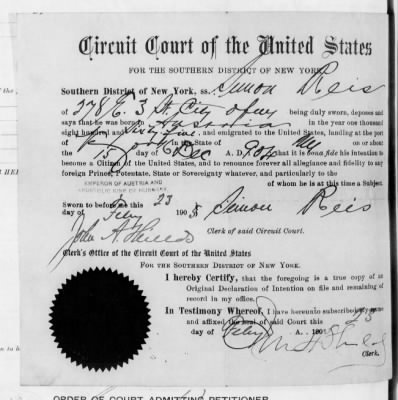 Circuit Court of the United States
FOR THE SOUTHERN DISTRICT OF NEW YORK
Southern District of New York, ss. Simon Reis
of 278 E. 3 St. City of NY being duly sworn, deposes and
says that he was born in in the year one thousand
eight hundred and Sixty five, and emigrated to the United States, landing at the port
of New York in the State of NY on or about
15 day of Dec A. D. that it is bona fide his intention to
become a Citizen of the United States, and to renounce forever all allegiance and fidelity to any
foreign Prince, Potentate, State or Sovereignty whatever, and particularly to the
EMPEROR OF AUSTRIA AND of whom he is at this time a Subject
APOSTOLIC KING OF HUNGARY
Sworn to before me this 23
day of Feby 190 Simon Reis
John A. Shields Clerk of said Circuit Court.
Clerk's Office of the Circuit Court of the United States
FOR THE SOUTHERN DISTRICT OF NEW YORK.
I hereby Certify, that the foregoing is a true copy of an
Original Declaration of Intention on file and remaining of
record in my office.
In Testimony Whereof, I have hereunto subscribed my name
and affixed the seal of said Court this 23
day of Feby A. 190
Clerk.
ORDER OF COURT ADMITTING PETITIONER